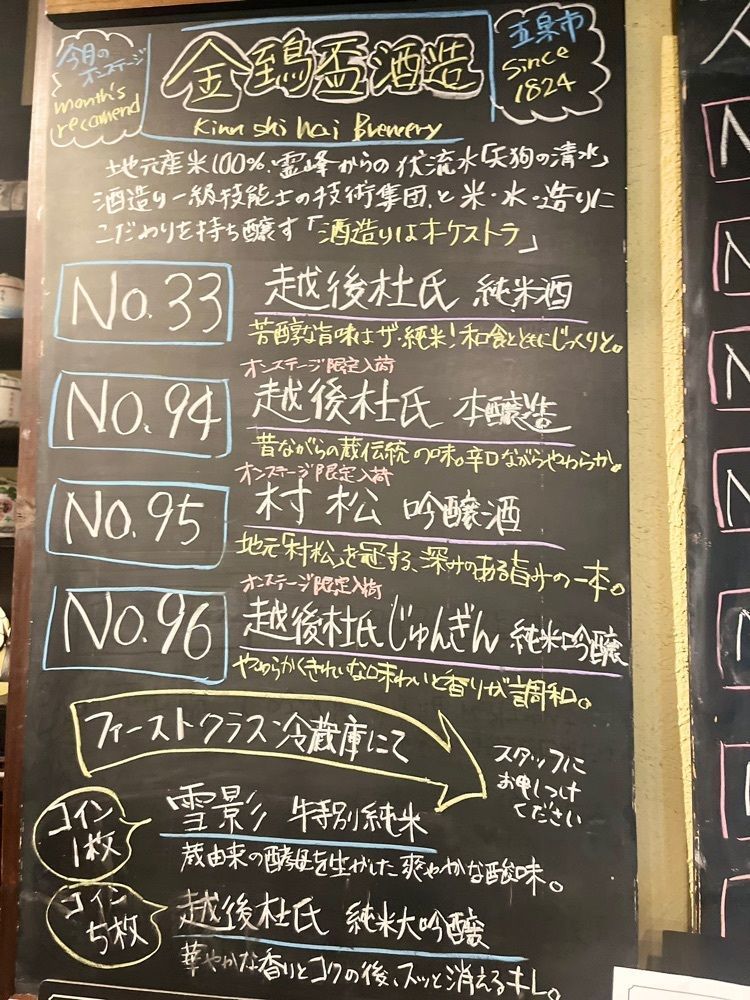 今月の
オンステージ
month's
recomend
金鵄盃酒造
五泉市
Since
1824
Kinn shi hai Brewery
地元産米100%、霊峰からの伏流水「天狗の清水」
酒造り一級技能士の技術集団、と米・水・造りに
こだわりを持ち醸す「酒造りはオーケストラ」
No.33
越後杜氏 純米酒
芳醇な旨味はザ・純米!和食とともにじっくりと。
オンステージ限定入荷
No.94
越後杜氏 本醸造
昔ながらの蔵伝統の味。辛口ながらやわらか。
オンステージ限定入荷
No.95
村松 吟醸酒
地元「村松」を冠する、深みのある旨みの一本。
オンステージ限定入荷
No.96
越後杜氏じゅんぎん 純米吟醸
やわらかくきれいな味わいと香りが調和。
ファーストクラス冷蔵庫にて
スタッフに
お申しつけ
ください
コイン
1枚
雪影 特別純米
蔵由来の酵母を生かした爽やかな酸味。
コイン
5枚
越後杜氏 純米大吟醸
華やかな香りとコクの後、スッと消えるキレ。